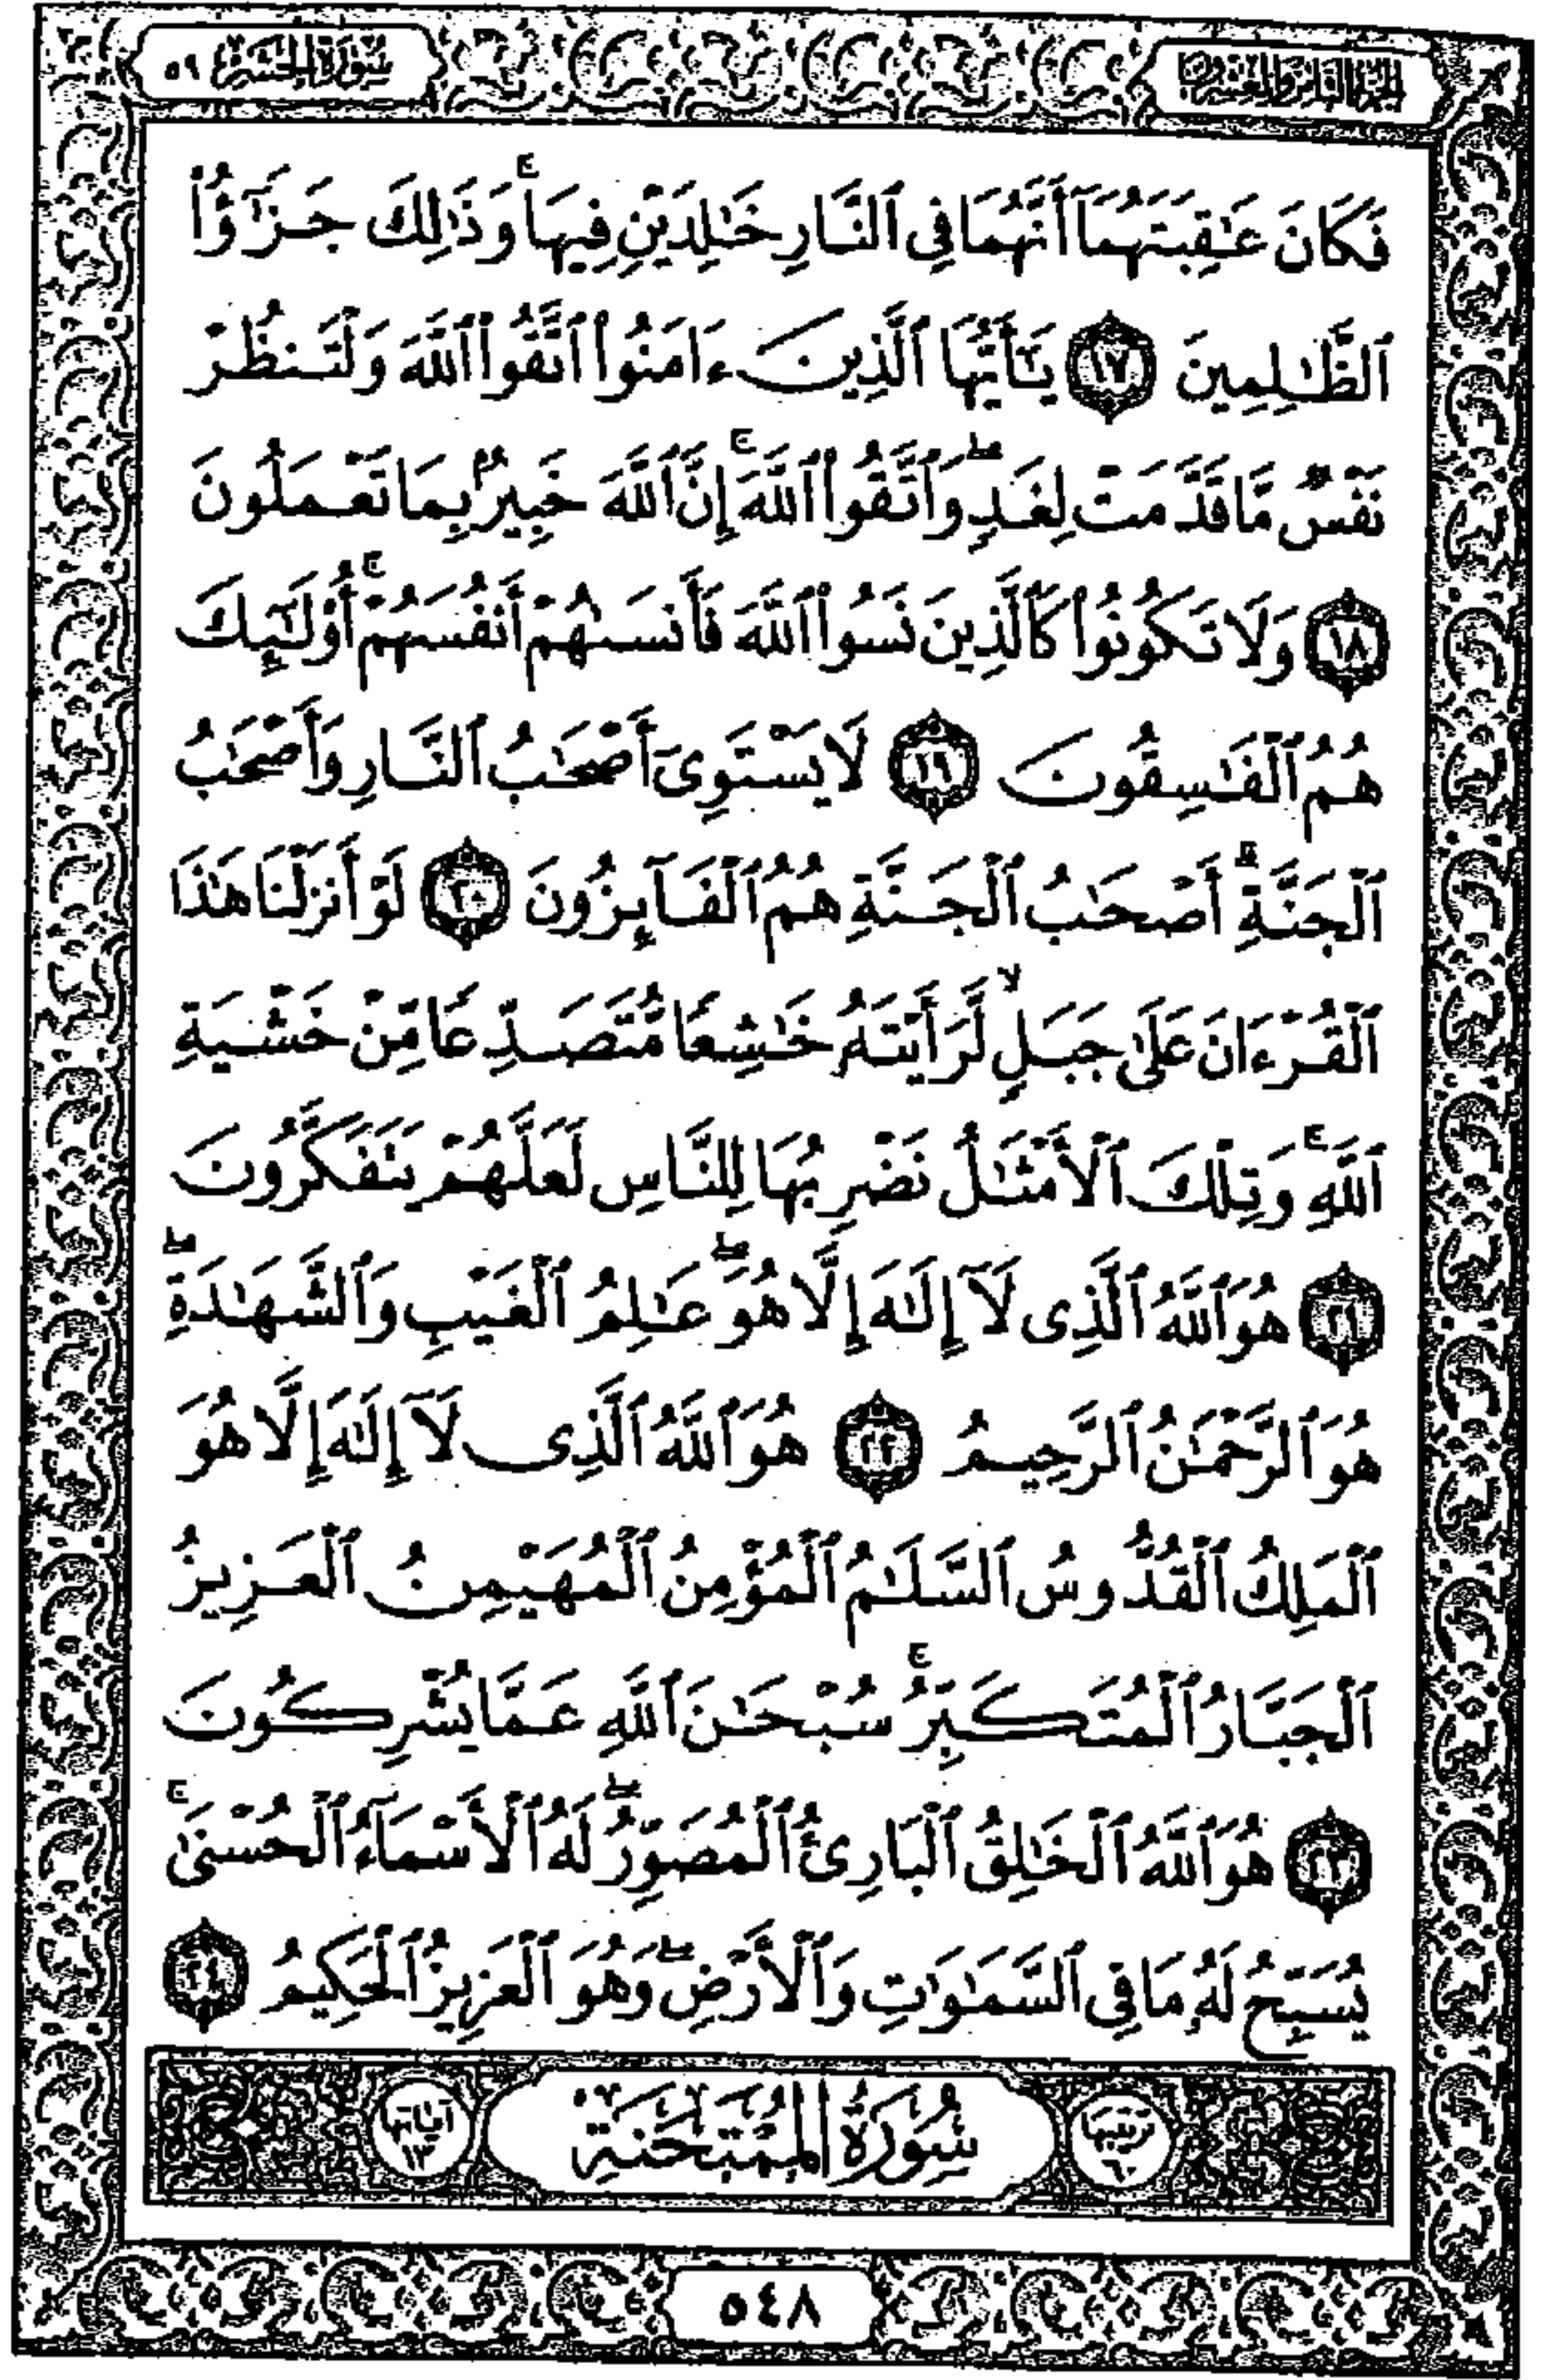 الجزء الثامن والعشرون
سورة الحشر ٥٩
فَكَانَ عَٰقِبَتَهُمَآ أَنَّهُمَا فِى ٱلنَّارِ خَٰلِدَيْنِ فِيهَا ۚ وَذَٰلِكَ جَزَٰٓؤُا۟
ٱلظَّٰلِمِينَ ١٧ يَٰٓأَيُّهَا ٱلَّذِينَ ءَامَنُوا۟ ٱتَّقُوا۟ ٱللَّهَ وَلْتَنظُرْ
نَفْسٌ مَّا قَدَّمَتْ لِغَدٍ ۖ وَٱتَّقُوا۟ ٱللَّهَ ۚ إِنَّ ٱللَّهَ خَبِيرٌۢ بِمَا تَعْمَلُونَ
١٨ وَلَا تَكُونُوا۟ كَٱلَّذِينَ نَسُوا۟ ٱللَّهَ فَأَنسَىٰهُمْ أَنفُسَهُمْ ۚ أُو۟لَٰٓئِكَ
هُمُ ٱلْفَٰسِقُونَ ١٩ لَا يَسْتَوِىٓ أَصْحَٰبُ ٱلنَّارِ وَأَصْحَٰبُ
ٱلْجَنَّةِ ۚ أَصْحَٰبُ ٱلْجَنَّةِ هُمُ ٱلْفَآئِزُونَ ٢٠ لَوْ أَنزَلْنَا هَٰذَا
ٱلْقُرْءَانَ عَلَىٰ جَبَلٍ ۙ لَّرَأَيْتَهُۥ خَٰشِعًا مُّتَصَدِّعًا مِّنْ خَشْيَةِ
ٱللَّهِ ۚ وَتِلْكَ ٱلْأَمْثَٰلُ نَضْرِبُهَا لِلنَّاسِ لَعَلَّهُمْ يَتَفَكَّرُونَ
٢١ هُوَ ٱللَّهُ ٱلَّذِى لَآ إِلَٰهَ إِلَّا هُوَ ۖ عَٰلِمُ ٱلْغَيْبِ وَٱلشَّهَٰدَةِ ۖ
هُوَ ٱلرَّحْمَٰنُ ٱلرَّحِيمُ ٢٢ هُوَ ٱللَّهُ ٱلَّذِى لَآ إِلَٰهَ إِلَّا هُوَ
ٱلْمَلِكُ ٱلْقُدُّوسُ ٱلسَّلَٰمُ ٱلْمُؤْمِنُ ٱلْمُهَيْمِنُ ٱلْعَزِيزُ
ٱلْجَبَّارُ ٱلْمُتَكَبِّرُ ۚ سُبْحَٰنَ ٱللَّهِ عَمَّا يُشْرِكُونَ
٢٣ هُوَ ٱللَّهُ ٱلْخَٰلِقُ ٱلْبَارِئُ ٱلْمُصَوِّرُ ۖ لَهُ ٱلْأَسْمَآءُ ٱلْحُسْنَىٰ ۚ
يُسَبِّحُ لَهُۥ مَا فِى ٱلسَّمَٰوَٰتِ وَٱلْأَرْضِ ۖ وَهُوَ ٱلْعَزِيزُ ٱلْحَكِيمُ ٢٤
ترتيبها ٦٠
سُورَةُ الْمُمْتَحَنَةِ
آياتها ١٣
٥٤٨